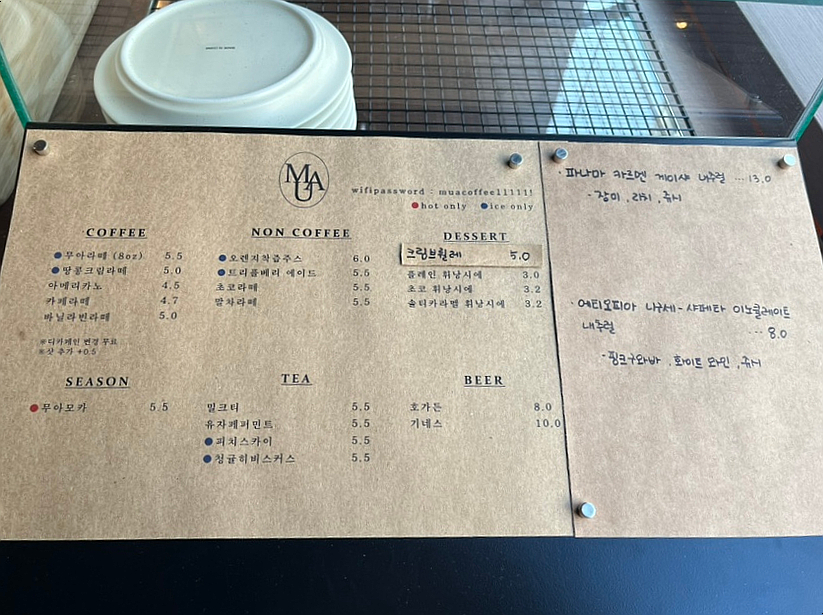 MUA
wifipassword : muacoffee11111!
●hot only ●ice only
COFFEE
●무아라떼 (8oz) 5.5
●땅콩크림라떼 5.0
아메리카노 4.5
카페라떼 4.7
바닐라빈라떼 5.0
※디카페인 변경 무료
※샷 추가 +0.5
NON COFFEE
●오렌지착즙주스 6.0
●트리플베리 에이드 5.5
초코라떼 5.5
말차라떼 5.5
DESSERT
크림브륄레 5.0
플레인 휘낭시에 3.0
초코 휘낭시에 3.2
솔티카라멜 휘낭시에 3.2
SEASON
●무아모카 5.5
TEA
밀크티 5.5
유자페퍼민트 5.5
●피치스카이 5.5
●청귤히비스커스 5.5
BEER
호가든 8.0
기네스 10.0
· 파나마 카르멘 게이샤 내추럴 ... 13.0
- 장미, 리치, 쥬시
· 에티오피아 니구세-샤페타 이노큘레이트
내추럴 ... 8.0
· 핑크구아바, 화이트 와인, 쥬시